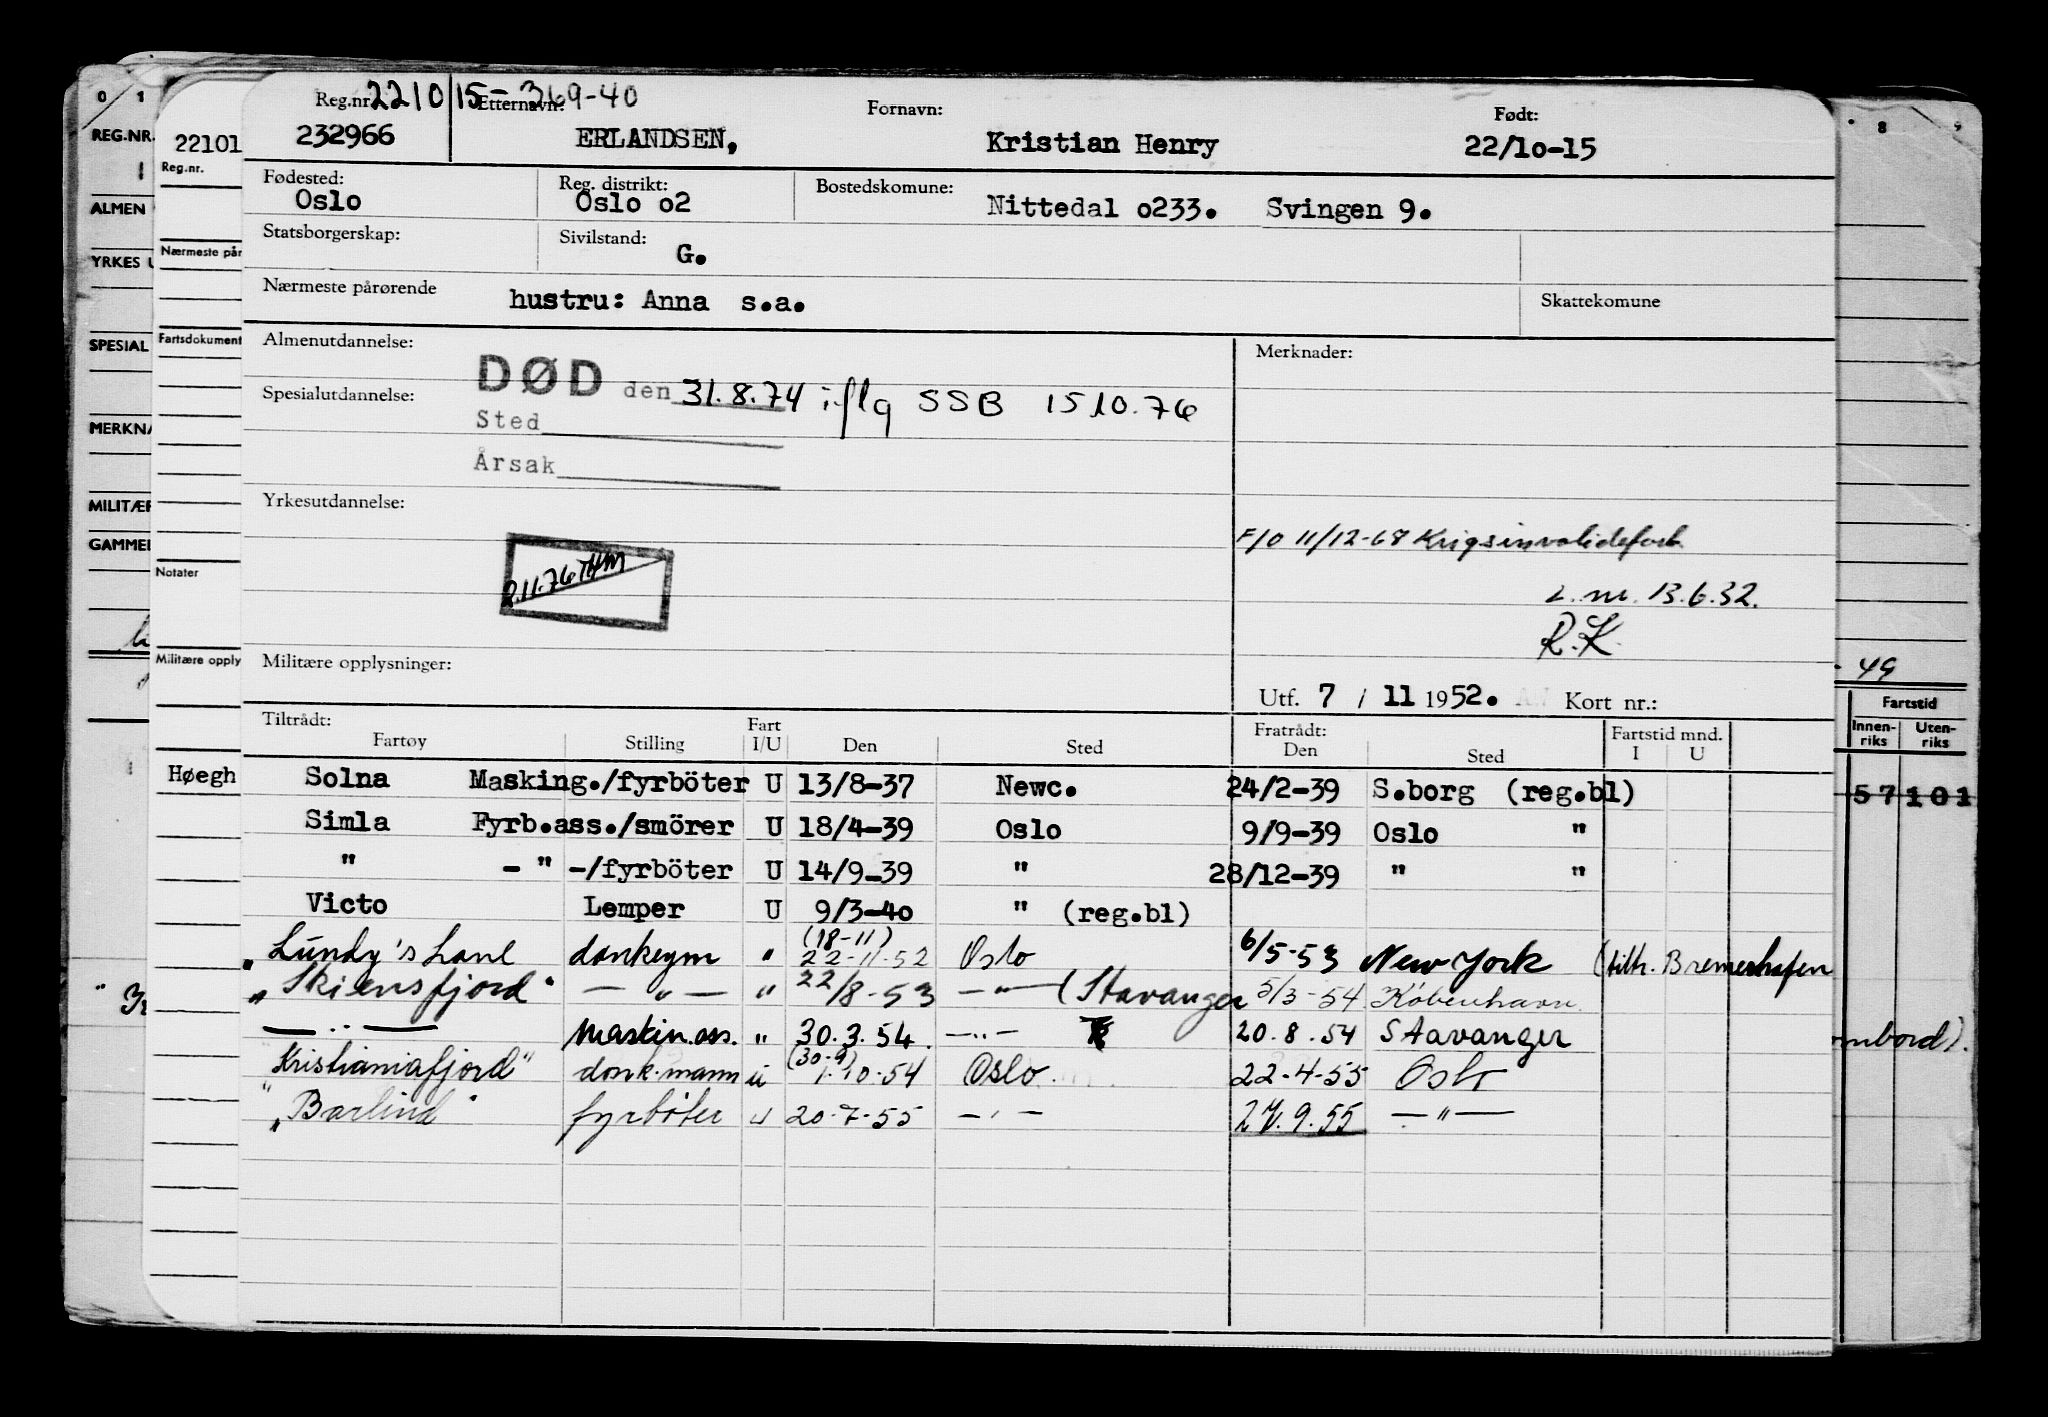 Reg.nr. 221015-369-40 Etternavn: Fornavn: Født:
232966 ERLANDSEN, Kristian Henry 22/10-15
Fødested: Reg. distrikt: Bostedskomune:
Oslo Oslo o2 Nittedal o233. Svingen 9.
Statsborgerskap: Sivilstand: G.
Nærmeste pårørende hustru: Anna s.a. Skattekomune
Almenutdannelse: Merknader:
DØD den 31.8.74 iflg SSB 15 10.76
Spesialutdannelse:
Sted
Årsak
Yrkesutdannelse:
F/O 11/12-68 Krigsinvalideforb.
2.11.76 THM
L. nr. 13.6.32.
R.K.
Militære opplysninger:
Utf. 7 / 11 1952. Kort nr.:
Tiltrådt: Fart Fratrådt: Fartstid mnd.
Fartøy Stilling I/U Den Sted Den Sted I U
Solna Masking./fyrböter U 13/8-37 Newc. 24/2-39 S.borg (reg.bl)
Simla Fyrb.ass./smörer U 18/4-39 Oslo 9/9-39 Oslo "
" - " -/fyrböter U 14/9-39 " 28/12-39 " "
Victo Lemper U 9/3-40 " (reg.bl)
(18-11)
"Lundy's Lane donkeym " 22-11-52 Oslo 6/5-53 New York (tiltr. Bremerhafen
"Skiensfjord" — " — " 22/8-53 — " — (Stavanger 5/3-54 København
— " — Maskin.ass. " 30.3.54. — " — 20.8.54 Stavanger
(30-9)
Kristianiafjord" donk.mann u 1-10-54 Oslo 22-4-55 Oslo
"Barlind" fyrbøter u 20-7-55 — " — 27.9.55 — " —
0 1
REG.NR.
ALMEN
YRKES U
SPESIAL
MERKNA
MILITÆR
GAMMEL
22101
Reg.nr.
Nærmeste pår
Fartsdokument
Notater
Militære opply
Høegh
8 9
49
Fartstid
Innen-riks Uten-riks
57 101
ombord).